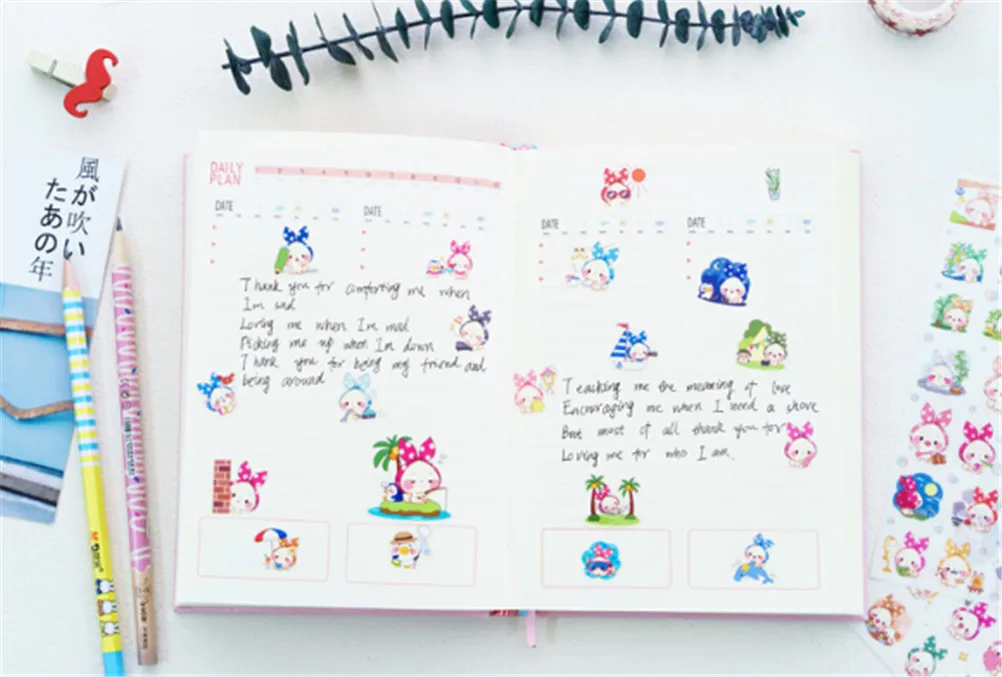 風が吹い
たあの年
DAILY
PLAN
DATE
DATE
Thank you for comforting me when
Im sad
Loving me when Im mad
Picking me up when Im down
Thank you for being my friend and
being around
DATE
DATE
Teaching me the meaning of love
Encouraging me when I need a shove
But most of all thank you for
Loving me for who I am.